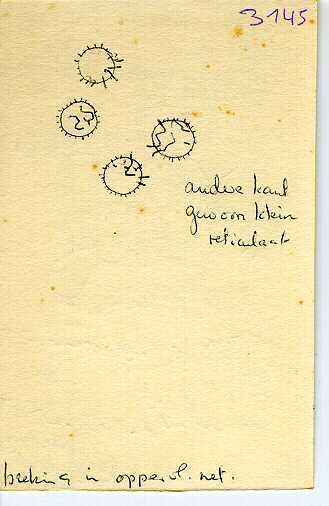 3145
andere kant
gewoon klein
reticulaat
breking in oppervl. net.